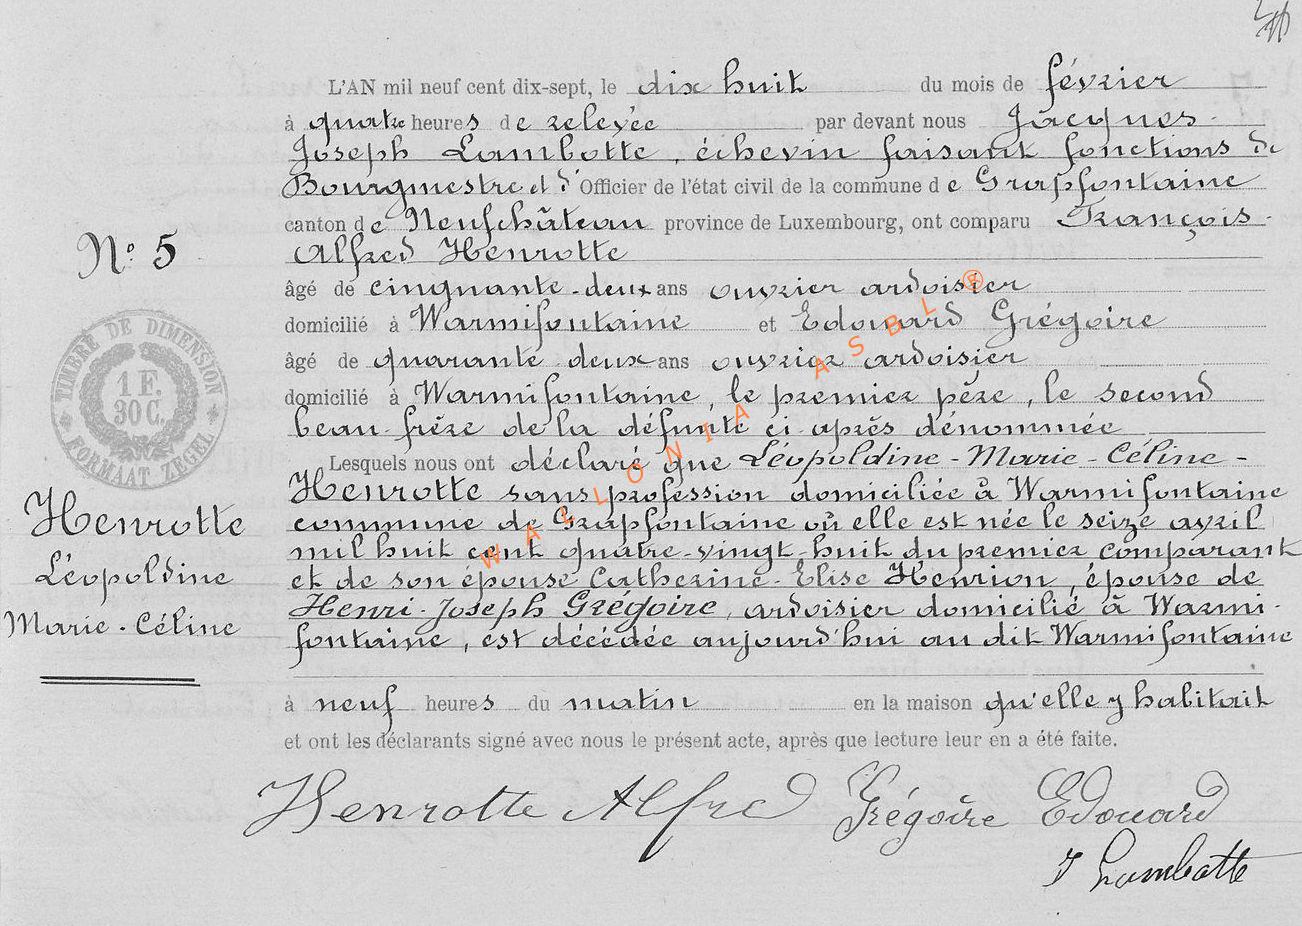 L'AN mil neuf cent dix-sept, le dix huit du mois de février
à quatre heures de relevée par devant nous Jacques
Joseph Lambotte, échevin faisant fonctions de
Bourgmestre et d'Officier de l'état civil de la commune de Grapfontaine
canton de Neufchâteau province de Luxembourg, ont comparu François
Alfred Henrotte
N° 5
âgé de cinquante-deux ans ouvrier ardoisier
domicilié à Warmifontaine et Edouard Grégoire
âgé de quarante deux ans ouvrier ardoisier
domicilié à Warmifontaine, le premier père, le second
beau-frère de la défunte ci après dénommée
TIMBRE DE DIMENSION
1 F.
30 C.
FORMAAT ZEGEL
Lesquels nous ont déclaré que Léopoldine-Marie-Céline-
Henrotte sans profession domiciliée à Warmifontaine
commune de Grapfontaine où elle est née le seize avril
mil huit cent quatre-vingt-huit du premier comparant
et de son épouse Catherine-Elise Henrion, épouse de
Henri-Joseph Grégoire, ardoisier domicilié à Warmi-
fontaine, est décédée aujourd'hui au dit Warmifontaine
Henrotte
Léopoldine
Marie-Céline
à neuf heures du matin en la maison qu'elle y habitait
et ont les déclarants signé avec nous le présent acte, après que lecture leur en a été faite.
Henrotte Alfred Grégoire Edouard
J Lambotte
WALLONIA ASBL ®